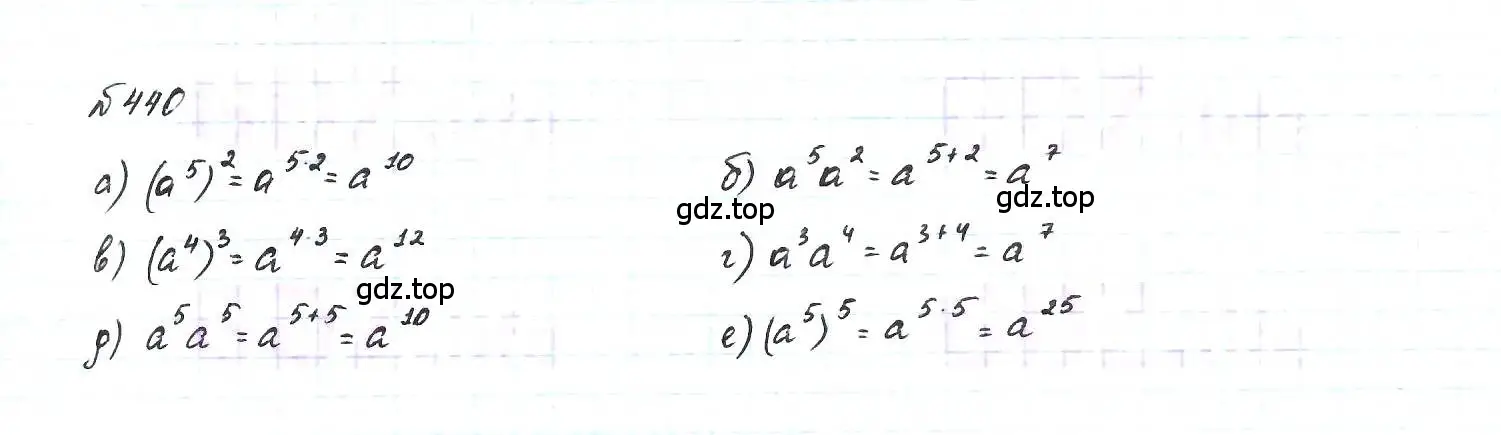 №440
а) (a⁵)² = a⁵·² = a¹⁰ б) a⁵a² = a⁵⁺² = a⁷
gdz.top gdz.top
в) (a⁴)³ = a⁴·³ = a¹² г) a³a⁴ = a³⁺⁴ = a⁷
gdz.top
д) a⁵a⁵ = a⁵⁺⁵ = a¹⁰ е) (a⁵)⁵ = a⁵·⁵ = a²⁵